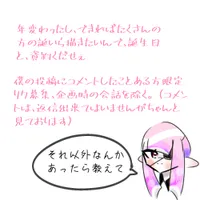 年変わったし、できればたくさんの
方の誕いら描きたいんで、誕生日
と、資料くだせぇ
僕の投稿にコメントしたことある方限定
り募集、企画時の会話を除く。(コメント
は、返信出来てはいませんがちゃんと
見ております)
それ以外なんか
あったら教えて